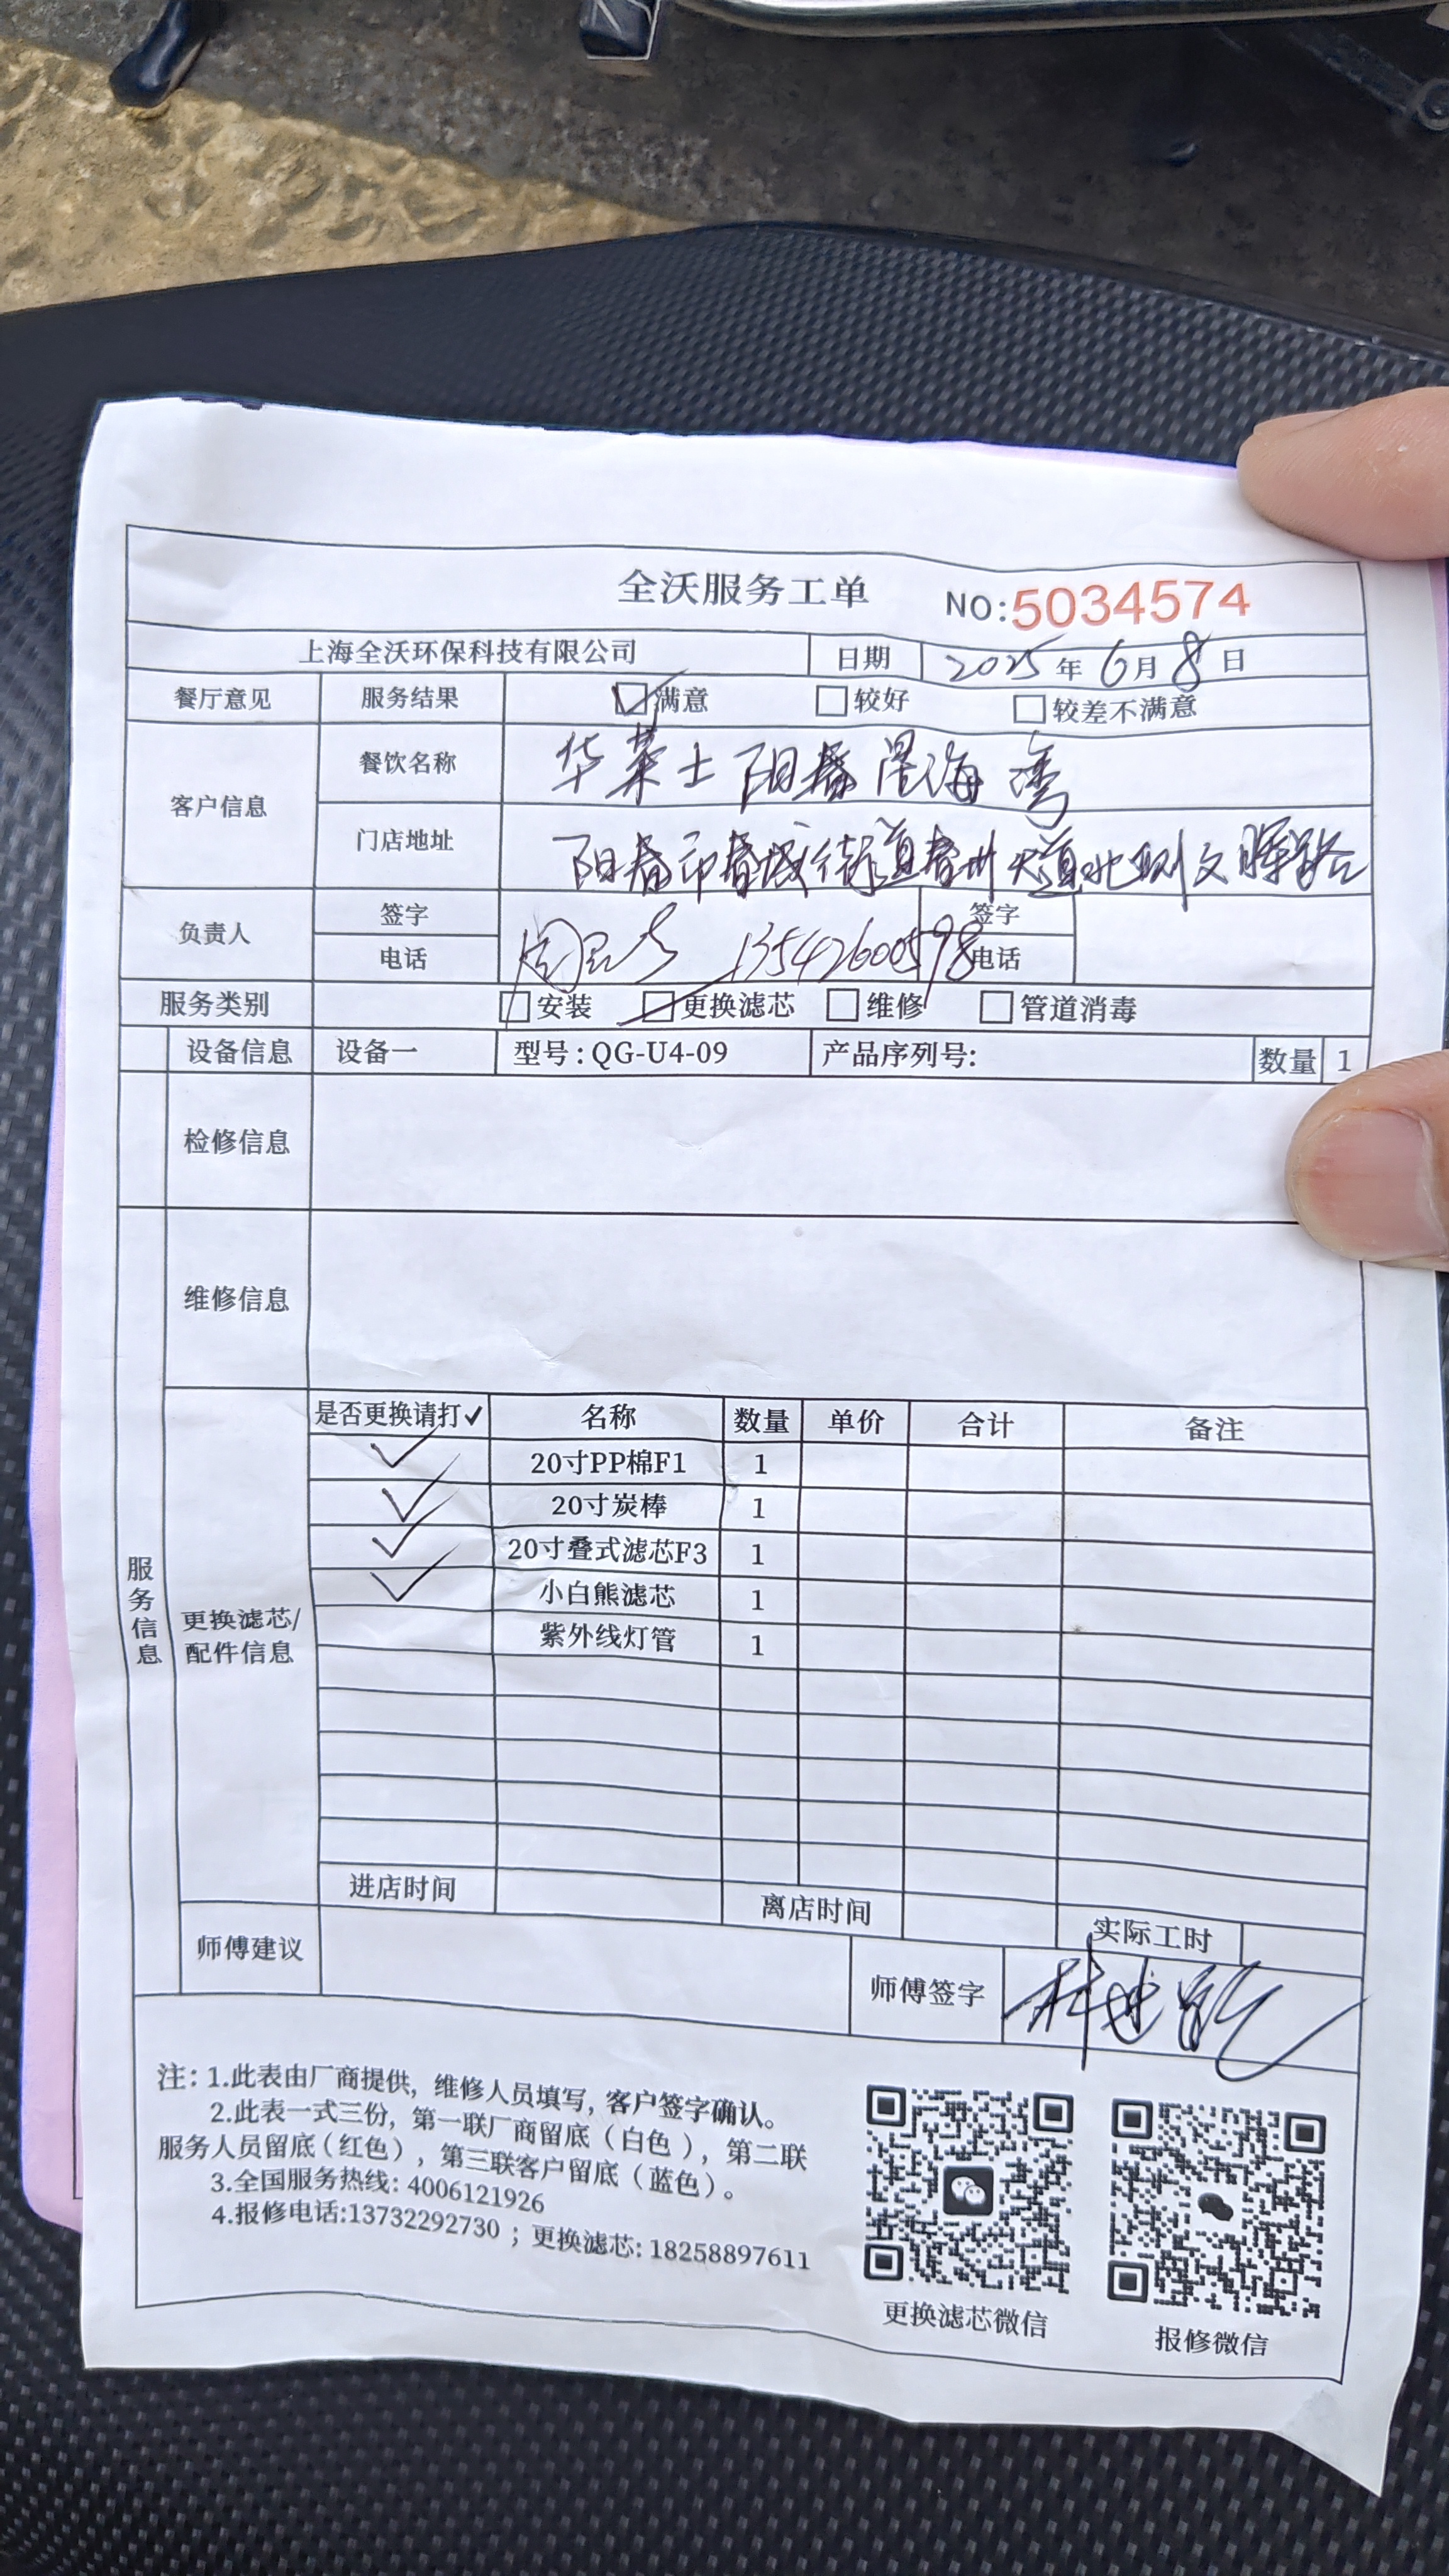 全沃服务工单 NO:5034574
上海全沃环保科技有限公司 日期 2025年6月8日
餐厅意见 服务结果 满意 较好 较差不满意
客户信息 餐饮名称 华莱士阳春碧海湾
门店地址 阳春市春城街道春州大道北侧文晖路
负责人 签字 签字
电话 13542600598 电话
服务类别 安装 更换滤芯 维修 管道消毒
设备信息 设备一 型号:QG-U4-09 产品序列号: 数量 1
检修信息
维修信息
服务信息
更换滤芯/配件信息
是否更换请打✓ 名称 数量 单价 合计 备注
✓ 20寸PP棉F1 1
✓ 20寸炭棒 1
✓ 20寸叠式滤芯F3 1
✓ 小白熊滤芯 1
紫外线灯管 1
进店时间 离店时间 实际工时
师傅建议 师傅签字
注: 1.此表由厂商提供, 维修人员填写, 客户签字确认。
2.此表一式三份, 第一联厂商留底(白色), 第二联
服务人员留底(红色), 第三联客户留底(蓝色)。
3.全国服务热线: 4006121926
4.报修电话:13732292730 ; 更换滤芯: 18258897611
更换滤芯微信 报修微信